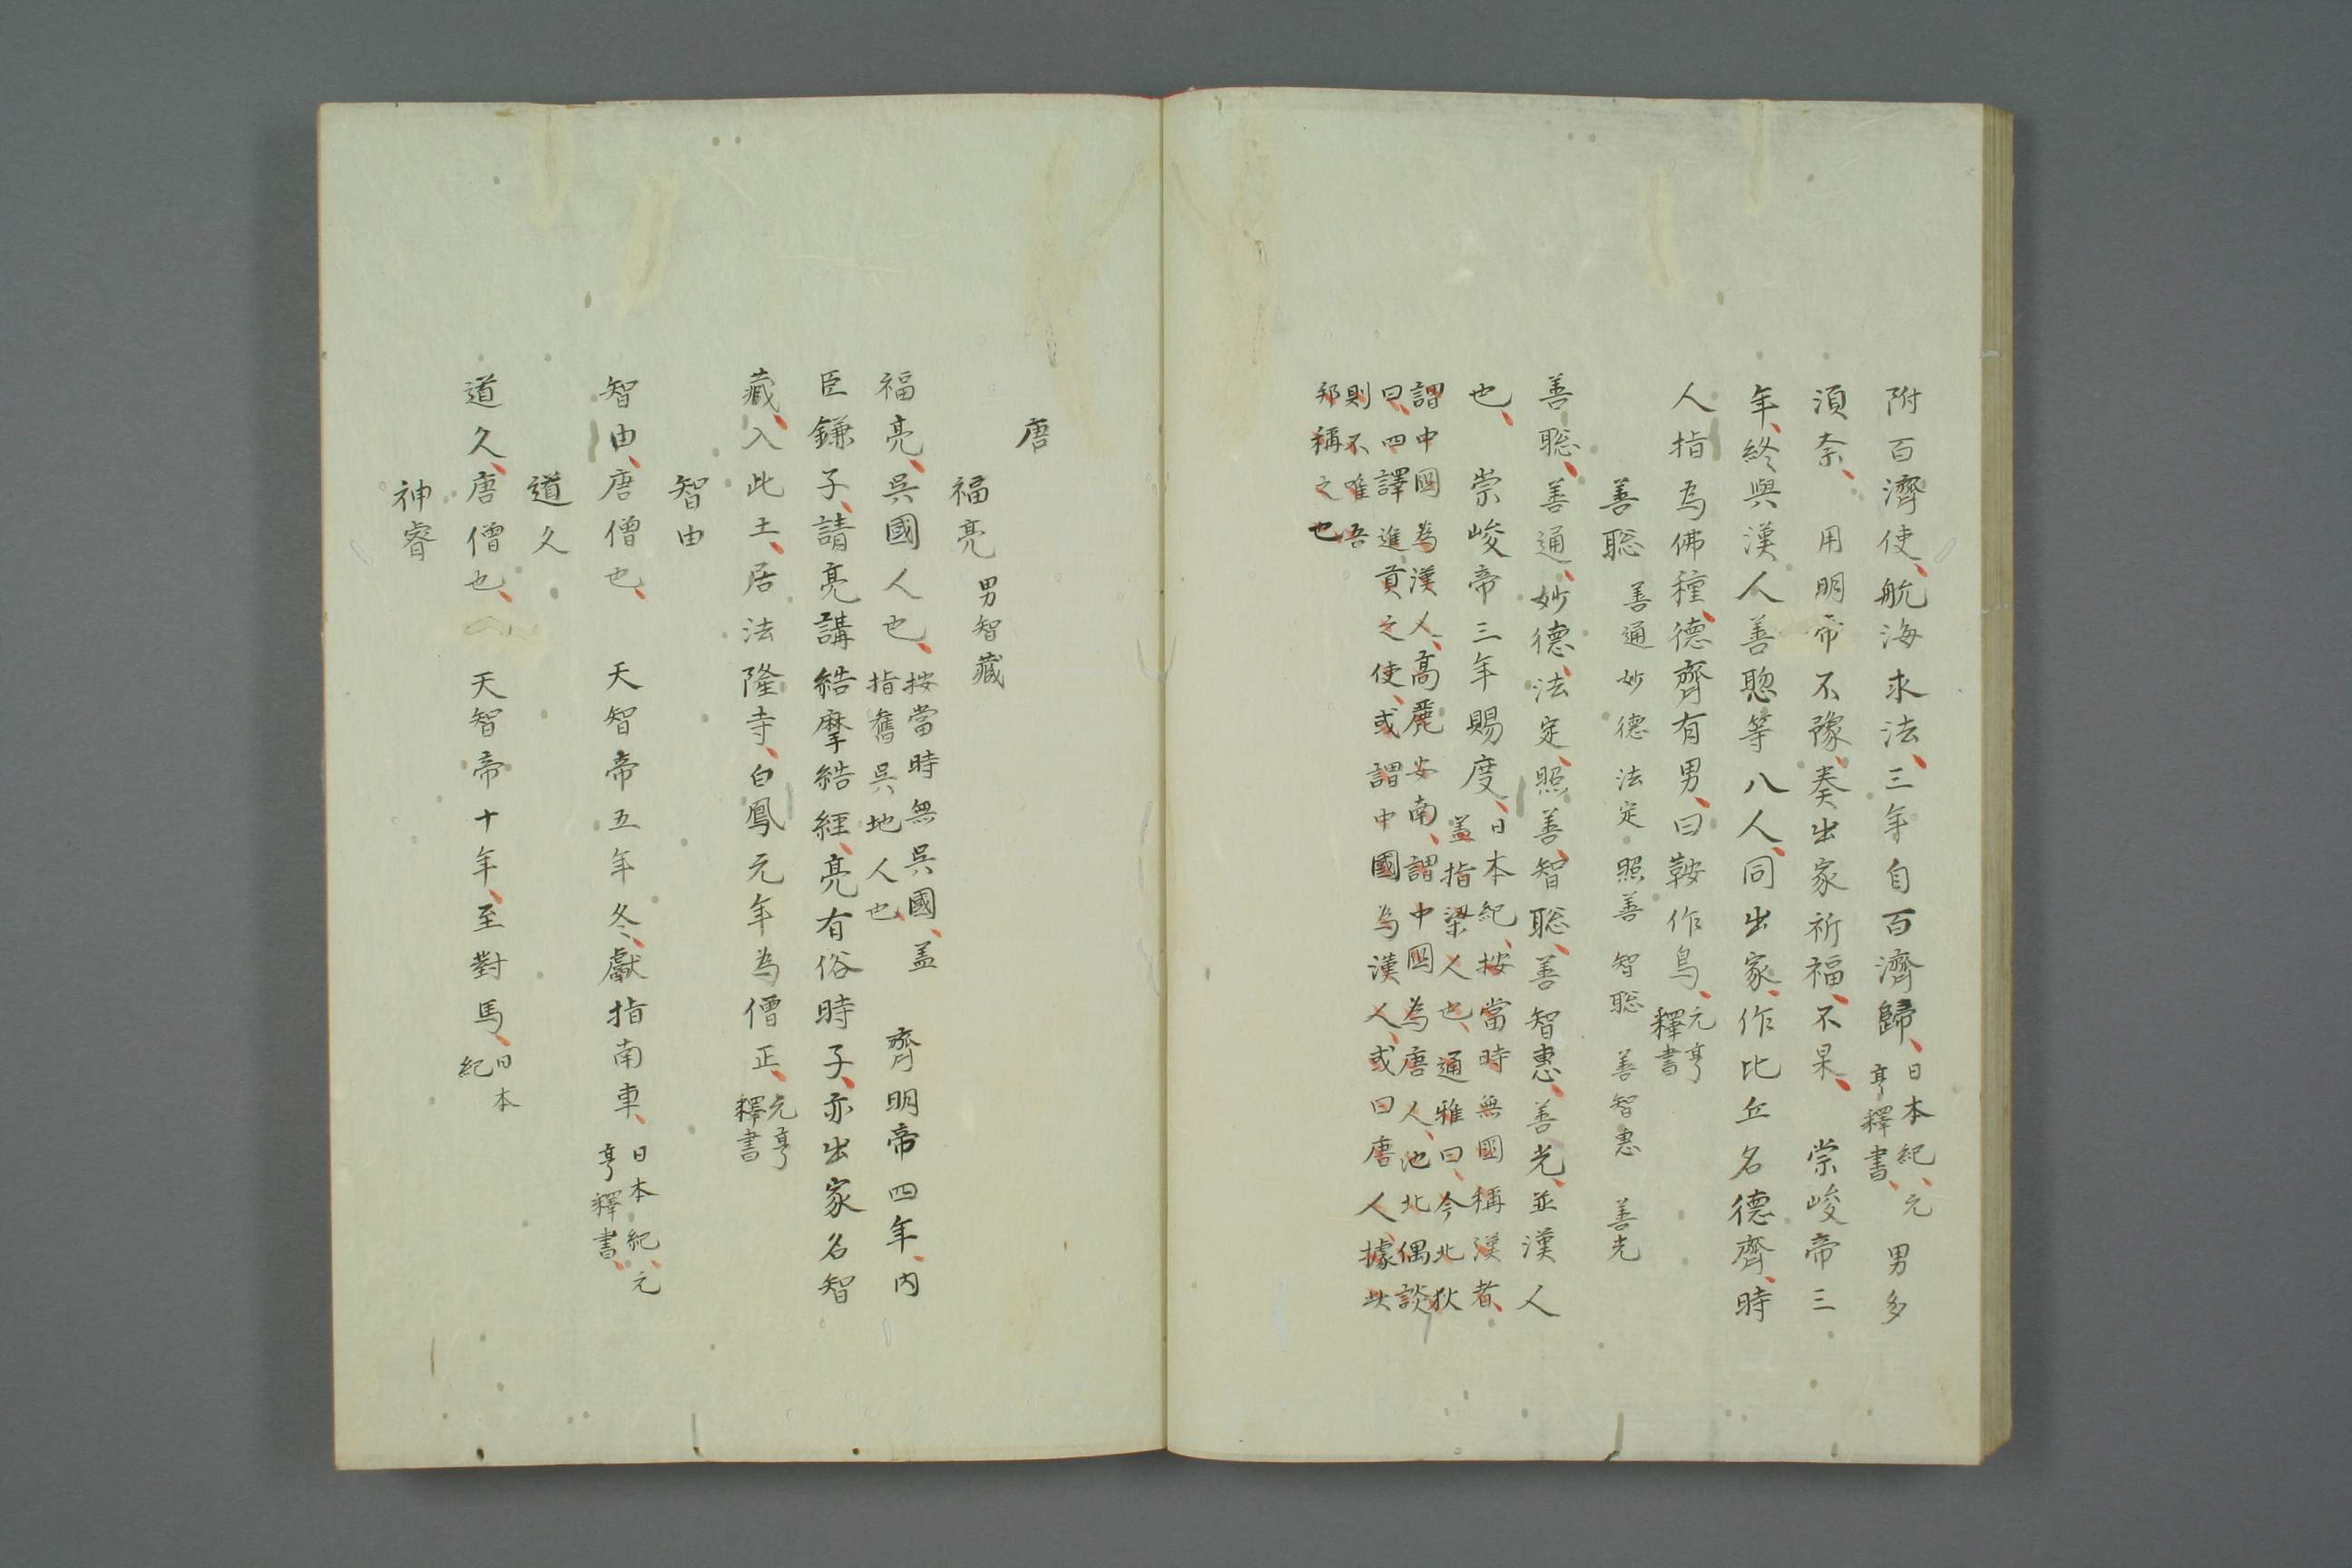 附百濟使、航海求法、三年自百濟歸、日本紀、元亨釋書、男多
須奈、用明帝不豫、奏出家祈福、不果、崇峻帝三
年、終與漢人善聰等八人、同出家、作比丘名德齊、時
人指為佛種、德齊有男、曰鞍作鳥、元亨釋書
善聡 善通 妙德 法定 照善 智聡 善智惠 善光
善聡、善通、妙德、法定、照善、智聡、善智惠、善光、並漢人
也、崇峻帝三年賜度、日本紀、按當時無國稱漢者、
蓋指梁人也、通雅曰、今北狄
謂中國為漢人、高麗安南、謂中國為唐人、池北偶談
曰、四譯進貢之使、或謂中國為漢人、或曰唐人、據此
則不唯吾
邦稱之也
唐
福亮 男智藏
福亮、吳國人也、按當時無吳國、蓋
指舊吳地人也、齊明帝四年、內
臣鎌子、請亮講維摩維經、亮有俗時子、亦出家名智
藏、入此土、居法隆寺、白鳳元年為僧正、元亨釋書
智由
智由、唐僧也、天智帝五年冬、獻指南車、日本紀、元亨釋書、
道久
道久、唐僧也、天智帝十年、至對馬、日本紀
神睿